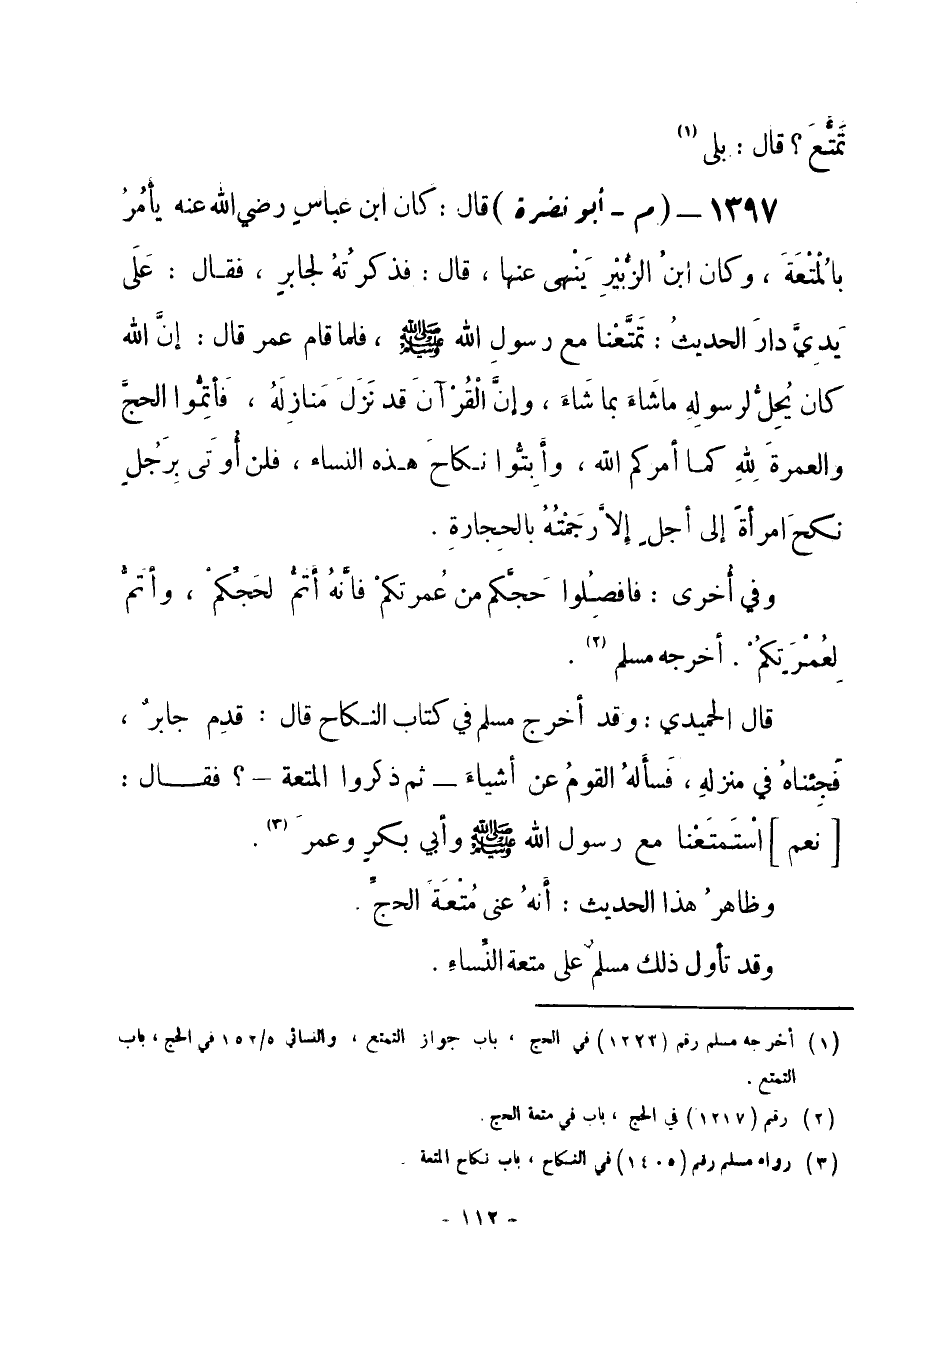 تَمَتَّعَ ؟ قال : بلى (١)
١٣٩٧ — ( م - أبو نضرة ) قال : كان ابن عباسٍ رضي الله عنه يأمُرُ
بالْمُتْعَةَ ، وكان ابنُ الزُّبَيْرِ يَنْهى عنها ، قال : فذكرتُهُ لجابرٍ ، فقـال : عَلَى
يَدِيَّ دارَ الحديثُ : تَمَتَّعْنا مع رسولِ الله ﷺ ، فلما قام عمر قال : إنَّ الله
كان يُحِلُّ لرسولهِ ماشَاءَ بما شَاءَ ، وإنَّ الْقُرْآنَ قد نَزَلَ مَنازِلَهُ ، فَأَتِمُّوا الحجَّ
والعمرةَ لِلهِ كمـا أمركم الله ، وأَبِتُّوا نـكاحَ هـذه النساء ، فلن أُوتَى بِرَجُلٍ
نكحَ امرأةً إلى أجلٍ إلاَّ رَجَمْتُهُ بالحِجارةِ .
وفي أُخرى : فافصِلُوا حَجَّكم من عُمرتكمْ فأنَّهُ أَتَمُّ لحَجِّكمْ ، وأَتمُّ
لِعُمْرَتِكمُْ . أخرجه مسلم (٢) .
قال الحميدي : وقد أخرج مسلم في كتاب النـكاح قال : قدِم جابرٌ ،
فَجِئناهُ في منزلهِ ، فَسألهُ القومُ عن أشياءَ — ثم ذكروا المتعة — ؟ فقـــال :
[ نعم ] اسْتَمتَعْنا مع رسول الله ﷺ وأبي بكرٍ وعمرَ (٣) .
وظاهرُ هذا الحديث : أنهُ عنى مُتْعَةَ الحجِّ .
وقد تأول ذلك مسلمٌ على متعة النِّساءِ .
(١) أخرجه مسلم رقم (١٢٢٣) في الحج ، باب جواز التمتع ، والنسائي ١٥٢/٥ في الحج ، باب
التمتع .
(٢) رقم (١٢١٧) في الحج ، باب في متعة الحج .
(٣) رواه مسلم رقم (١٤٠٥) في النكاح ، باب نكاح المتعة .
- ١١٢ -